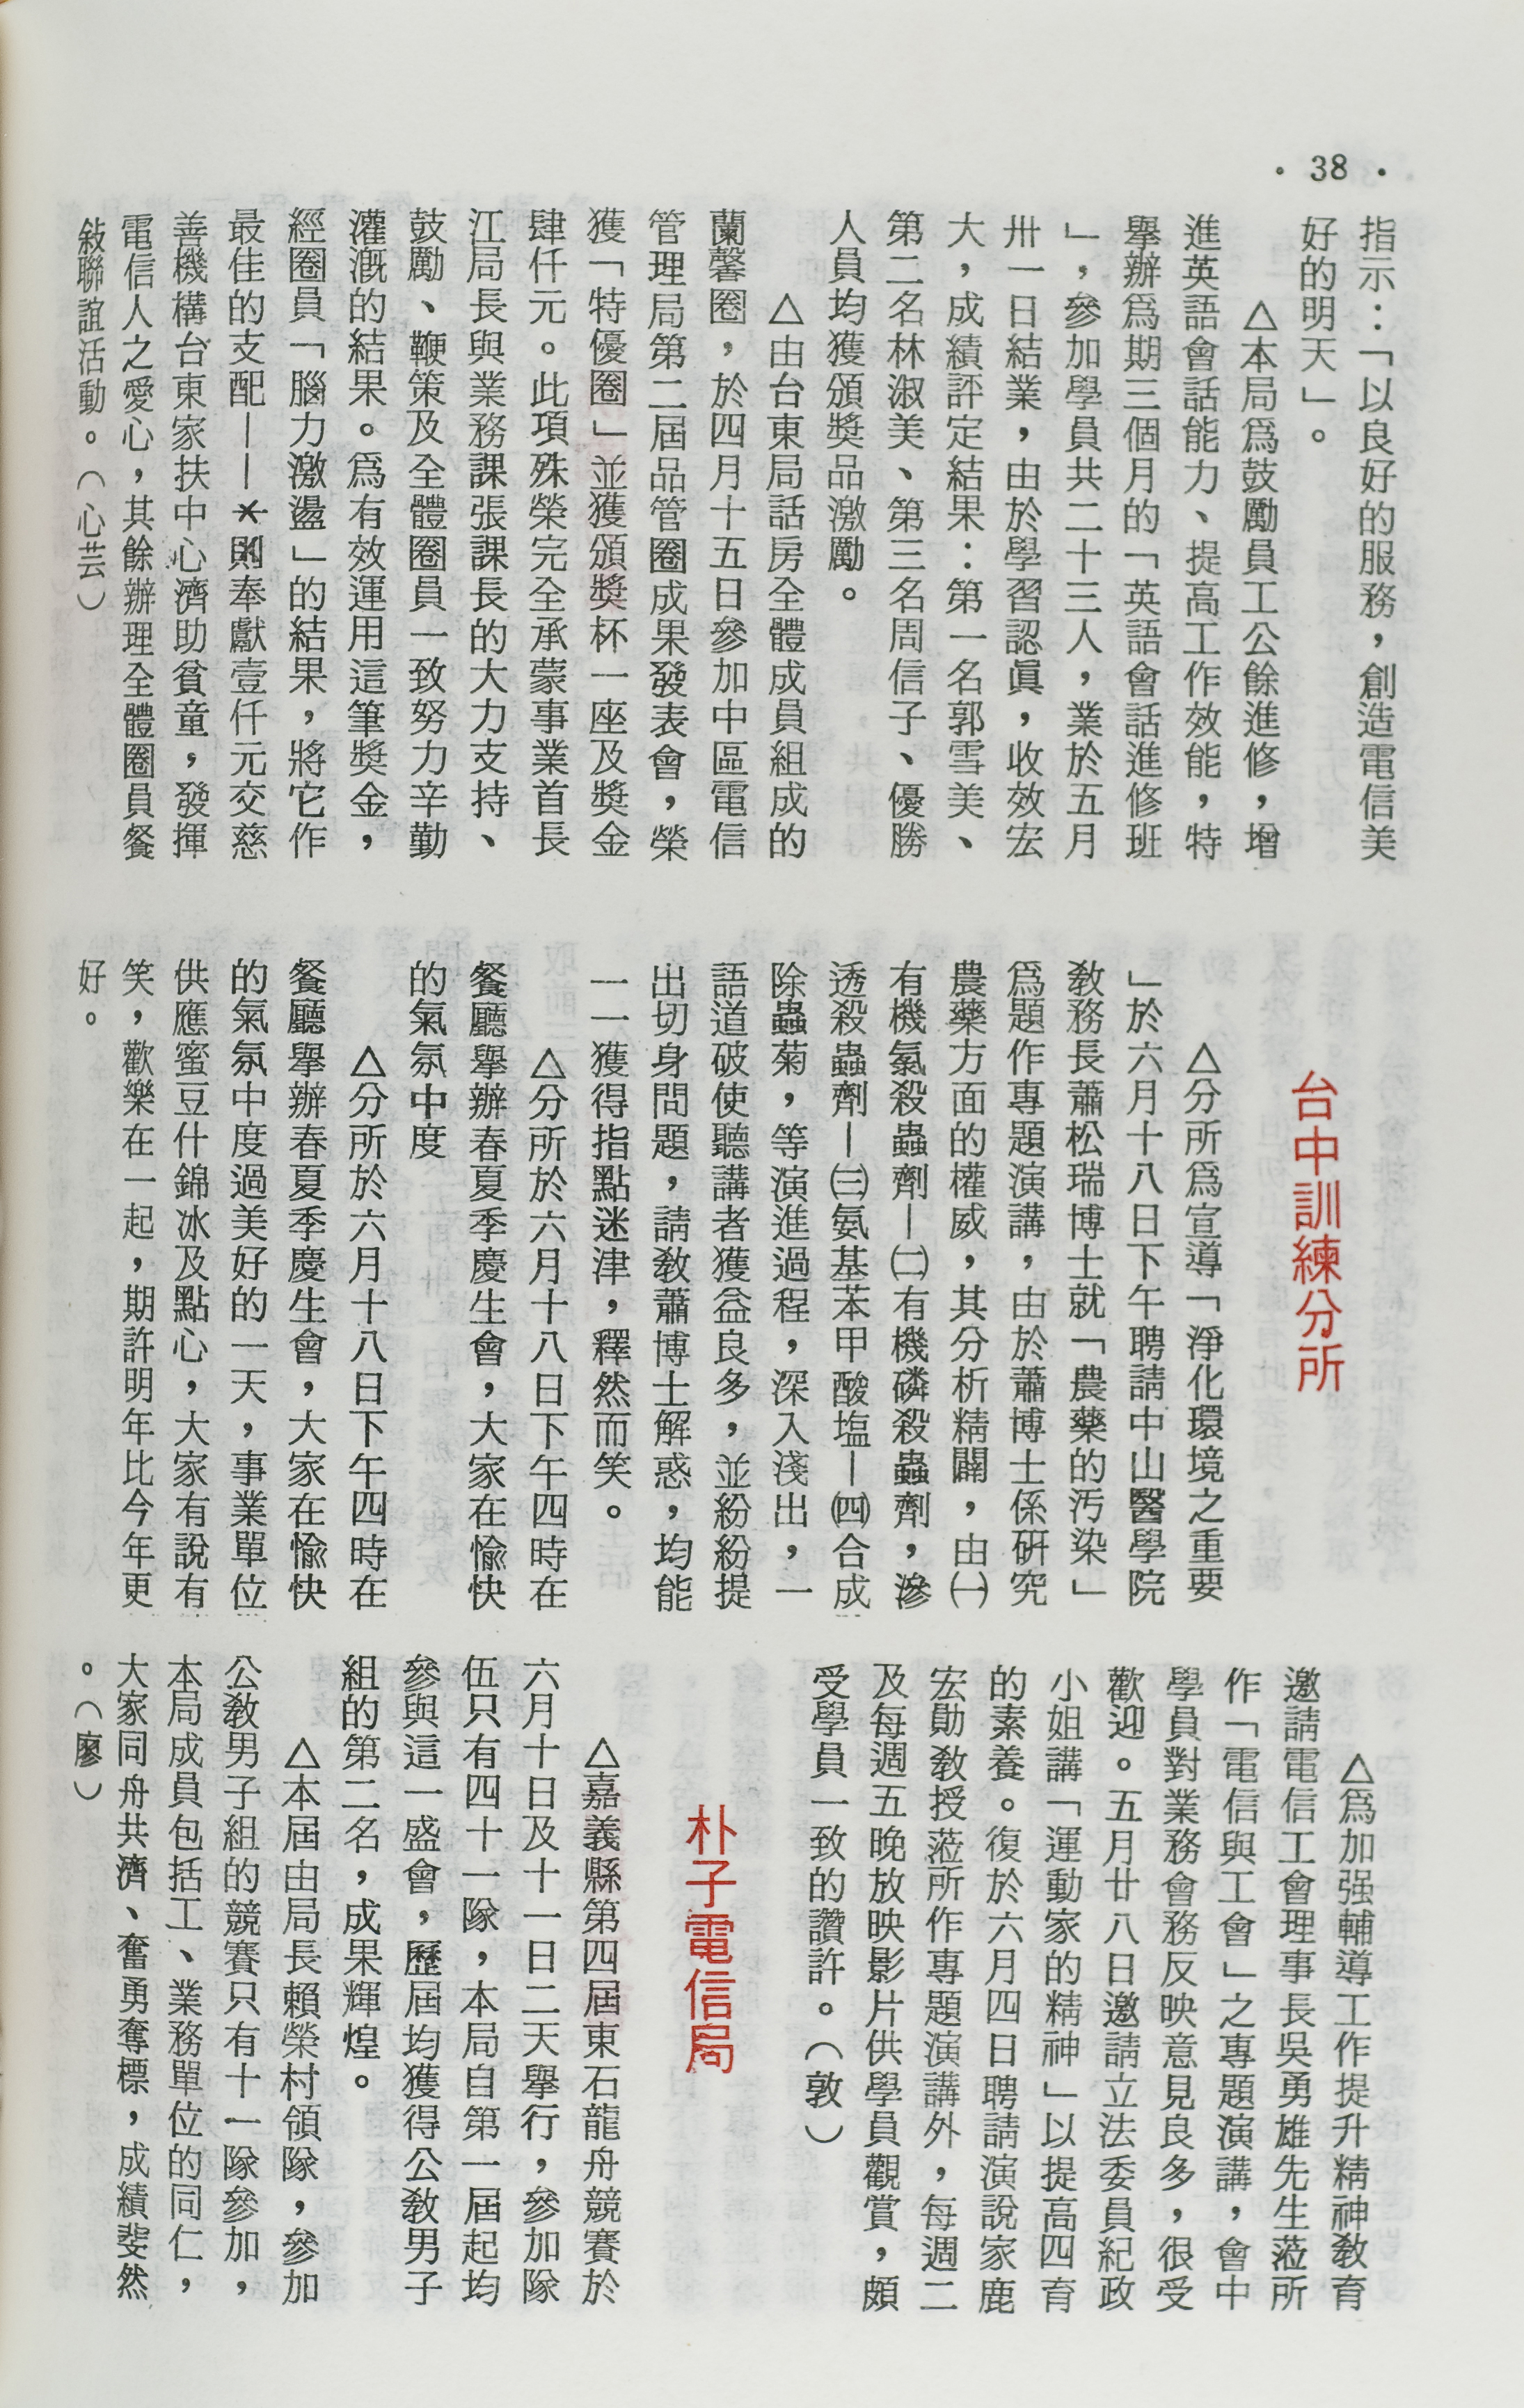 • 38 •
指示：「以良好的服務，創造電信美
好的明天」。
△本局爲鼓勵員工公餘進修，增
進英語會話能力、提高工作效能，特
舉辦爲期三個月的「英語會話進修班
」，參加學員共二十三人，業於五月
卅一日結業，由於學習認眞，收效宏
大，成績評定結果：第一名郭雪美、
第二名林淑美、第三名周信子、優勝
人員均獲頒獎品激勵。
△由台東局話房全體成員組成的
蘭馨圈，於四月十五日參加中區電信
管理局第二屆品管圈成果發表會，榮
獲「特優圈」並獲頒獎杯一座及獎金
肆仟元。此項殊榮完全承蒙事業首長
江局長與業務課張課長的大力支持、
鼓勵、鞭策及全體圈員一致努力辛勤
灌溉的結果。爲有效運用這筆獎金，
經圈員「腦力激盪」的結果，將它作
最佳的支配——則奉獻壹仟元交慈
善機構台東家扶中心濟助貧童，發揮
電信人之愛心，其餘辦理全體圈員餐
敍聯誼活動。（心芸）
台中訓練分所
△分所爲宣導「淨化環境之重要
」於六月十八日下午聘請中山醫學院
教務長蕭松瑞博士就「農藥的汚染」
爲題作專題演講，由於蕭博士係硏究
農藥方面的權威，其分析精闢，由㈠
有機氯殺蟲劑—㈡有機磷殺蟲劑，滲
透殺蟲劑—㈢氨基苯甲酸塩—㈣合成
除蟲菊，等演進過程，深入淺出，一
語道破使聽講者獲益良多，並紛紛提
出切身問題，請教蕭博士解惑，均能
一一獲得指點迷津，釋然而笑。
△分所於六月十八日下午四時在
餐廳舉辦春夏季慶生會，大家在愉快
的氣氛中度
△分所於六月十八日下午四時在
餐廳舉辦春夏季慶生會，大家在愉快
的氣氛中度過美好的一天，事業單位
供應蜜豆什錦冰及點心，大家有說有
笑，歡樂在一起，期許明年比今年更
好。
△爲加强輔導工作提升精神敎育
邀請電信工會理事長吳勇雄先生蒞所
作「電信與工會」之專題演講，會中
學員對業務會務反映意見良多，很受
歡迎。五月廿八日邀請立法委員紀政
小姐講「運動家的精神」以提高四育
的素養。復於六月四日聘請演說家鹿
宏勛敎授蒞所作專題演講外，每週二
及每週五晚放映影片供學員觀賞，頗
受學員一致的讚許。（敦）
朴子電信局
△嘉義縣第四屆東石龍舟競賽於
六月十日及十一日二天舉行，參加隊
伍只有四十一隊，本局自第一屆起均
參與這一盛會，歷屆均獲得公敎男子
組的第二名，成果輝煌。
△本屆由局長賴榮村領隊，參加
公敎男子組的競賽只有十一隊參加，
本局成員包括工、業務單位的同仁，
大家同舟共濟、奮勇奪標，成績斐然
。（廖）